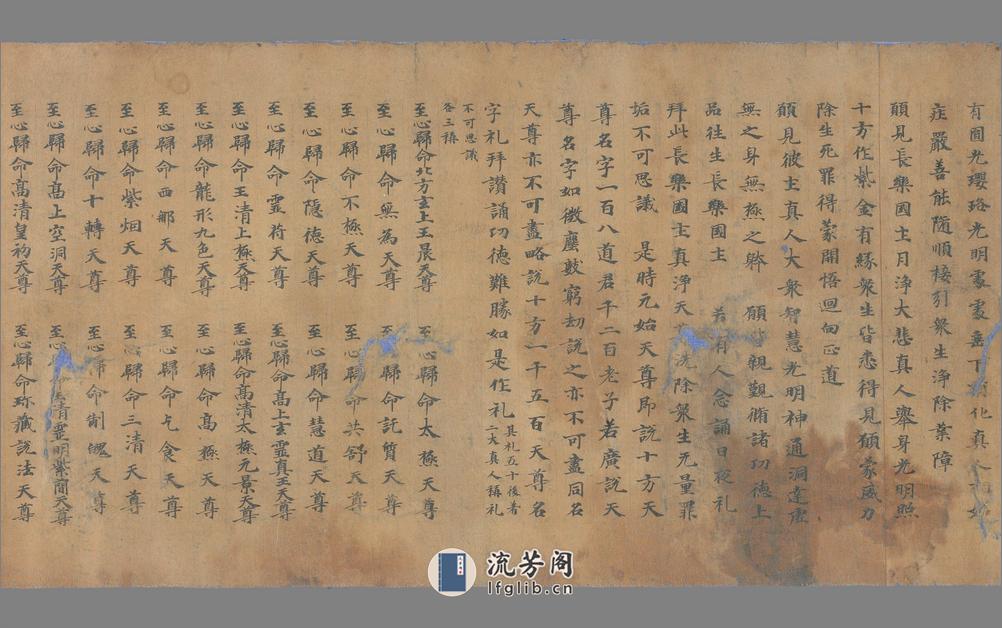 有圓光瓔珞光明處處垂下
症嚴善能隨順棲引衆生淨除業障
願見長樂國土月淨大悲真人舉身光明照
十方作紫金有緣衆生皆悉得見願蒙威力
除生死罪得蒙開悟迴向正道
願見彼土真人大衆智慧光明神通洞達虛
無之身無極之躰 願皆親觀脩諸功德上
品往生長樂國土 若有人念誦日夜礼
拜此長樂國土真淨天 洗除衆生无量罪
垢不可思議 是時元始天尊即說十方天
尊名字一百八道君千二百老子若廣說天
尊名字如微塵數窮劫說之亦不可盡同名
天尊亦不可盡略說十方一千五百天尊名
字礼拜讚誦功德難勝如是作礼 其礼五十後者
二大真人稱礼
不可思議
各三稱
至心歸命北方玄上玉晨天尊 至心歸命太極天尊
至心歸命無為天尊 至心歸命託質天尊
至心歸命不極天尊 至心歸命共舒天尊
至心歸命隱德天尊 至心歸命慧道天尊
至心歸命靈符天尊 至心歸命高上玄靈真王天尊
至心歸命玉清上極天尊 至心歸命高清太極元景天尊
至心歸命龍形九色天尊 至心歸命高極天尊
至心歸命西那天尊 至心歸命乞食天尊
至心歸命紫烟天尊 至心歸命三清天尊
至心歸命十轉天尊 至心歸命制魄天尊
至心歸命高上空洞天尊 至心 清靈明紫簡天尊
至心歸命高清皇初天尊 至心歸命珎藏說法天尊
流芳阁
lfglib.cn